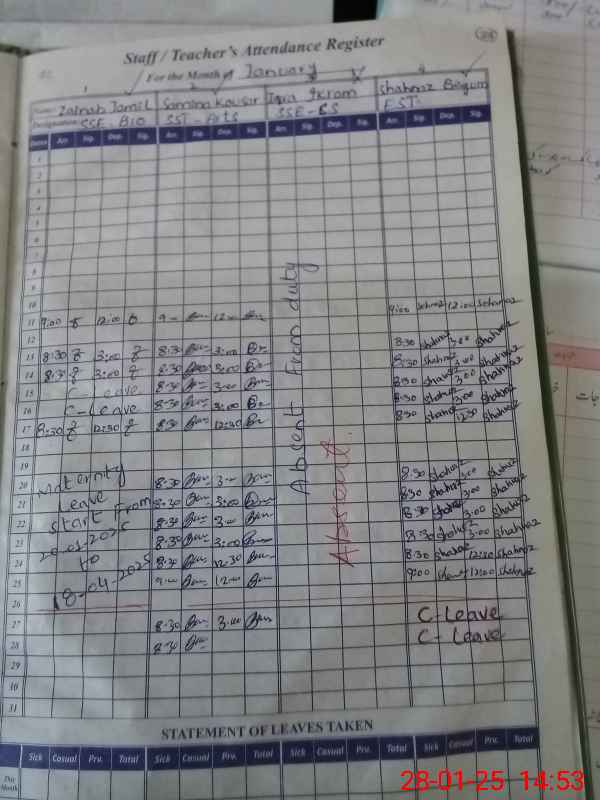 Staff / Teacher's Attendance Register
For the Month of January
1 2 3 4
Name: Zainab Jamil Samina Kausar Iqra Ikram Shahnaz Begum
Designation: SSE-Bio SST-Arts SSE-CS EST
Dates Arr. Sig. Dep. Sig. Arr. Sig. Dep. Sig. Arr. Sig. Dep. Sig. Arr. Sig. Dep. Sig.
1
2
3
4
5
6
7
8
9
10
11 9:00 12:00 9:00 12:00 9:00 Shahnaz 12:00 Shahnaz
12
13 8:30 3:00 8:30 3:00 8:30 Shahnaz 3:00 Shahnaz
14 8:30 3:00 8:30 3:00 8:30 Shahnaz 3:00 Shahnaz
15 C-Leave 8:30 3:00 8:30 Shahnaz 3:00 Shahnaz
16 C-Leave 8:30 3:00 8:30 Shahnaz 3:00 Shahnaz
17 8:30 12:30 8:30 12:30 8:30 Shahnaz 12:30 Shahnaz
18
19
20 Maternity 8:30 3:00 8:30 Shahnaz 3:00 Shahnaz
21 Leave 8:30 3:00 8:30 Shahnaz 3:00 Shahnaz
22 Start From 8:30 3:00 8:30 Shahnaz 3:00 Shahnaz
23 20-01-2025 8:30 3:00 8:30 Shahnaz 3:00 Shahnaz
24 to 8:30 12:30 8:30 Shahnaz 12:30 Shahnaz
25 18-04-2025 9:00 12:00 9:00 Shahnaz 12:00 Shahnaz
26
27 8:30 3:00 C-Leave
28 8:30 C-Leave
29
30
31
Absent From duty
Absent.
STATEMENT OF LEAVES TAKEN
Sick Casual Prv. Total Sick Casual Prv. Total Sick Casual Prv. Total Sick Casual Prv. Total
Due
Month
28-01-25 14:53